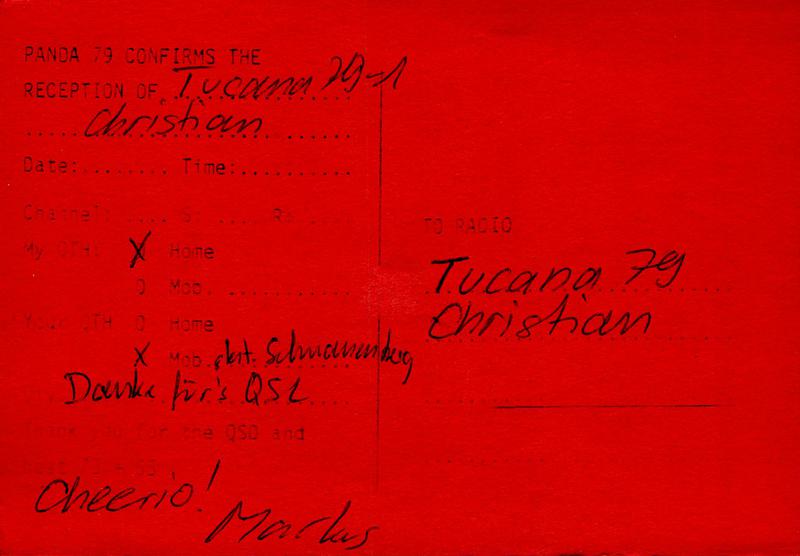 PANDA 79 CONFIRMS THE
RECEPTION OF Tucana 79-1
Christian
Date:........ Time:..........
Channel: .... S: .... R: ....
My QTH: X Home
O Mob. ............
Your QTH O Home
X Mob.
Danke für's QSL
Thank you for the QSO and
best 73 + 55
Cheerio!
Markus
TO RADIO
Tucana 79
Christian